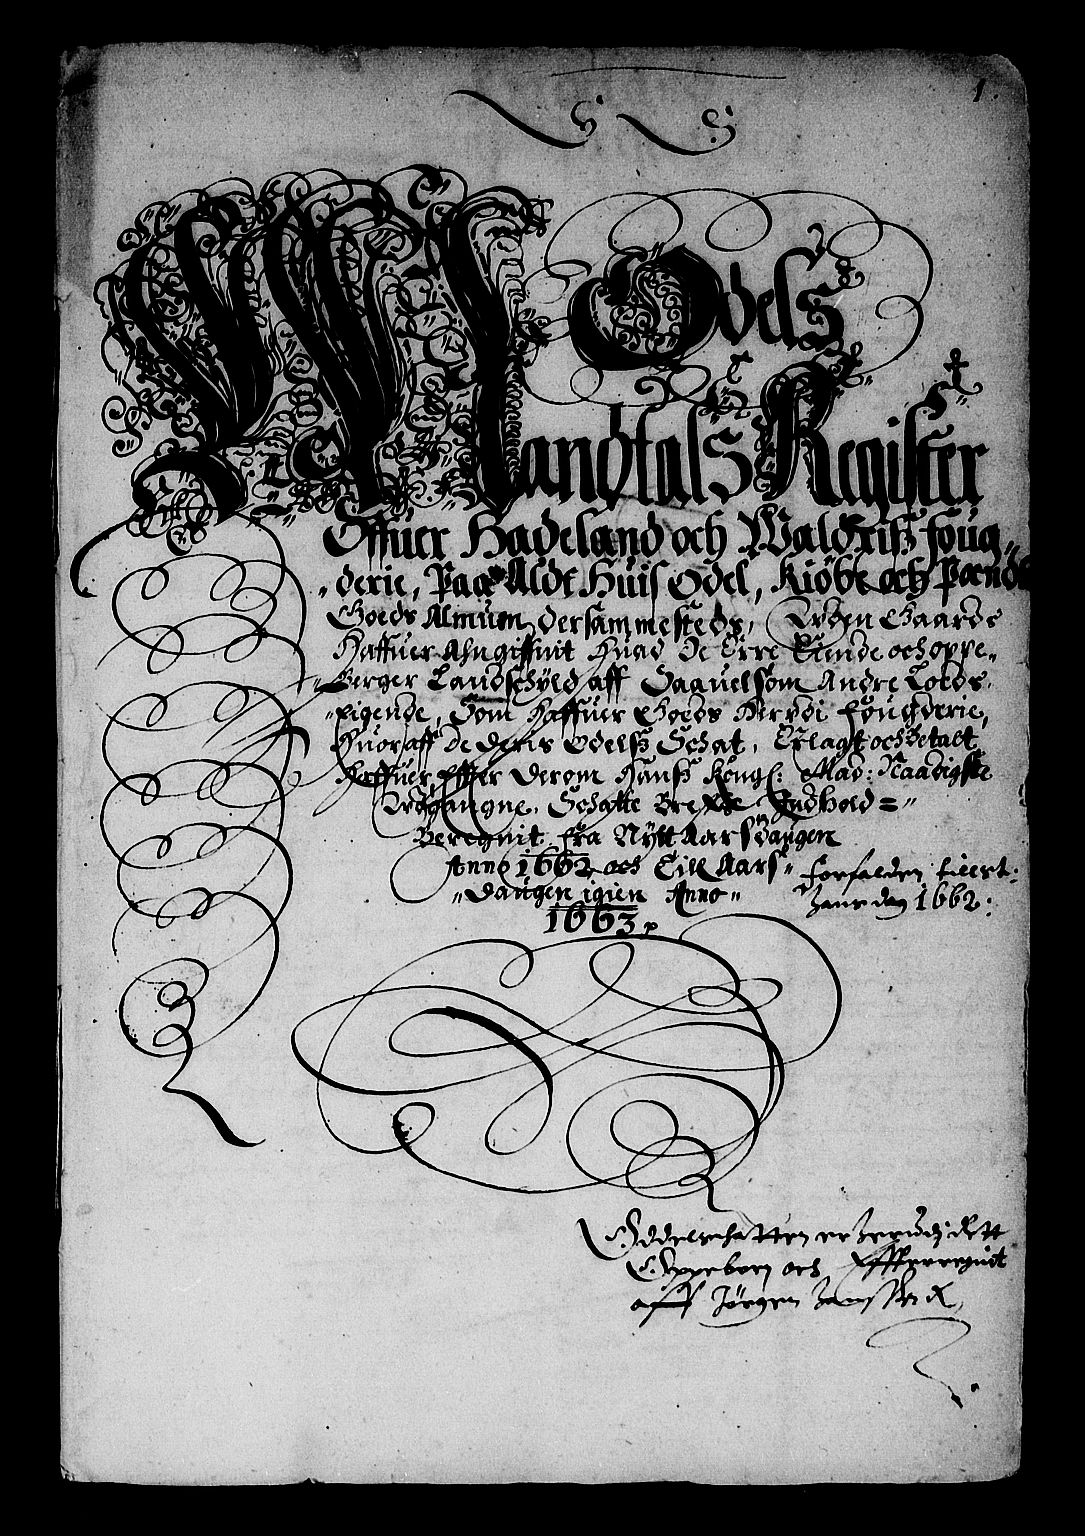 1.
Odels
Mandtals Register
Offuer Hadeland och Waldriss foug-
derie, Paa Aldt Huis Odel, Kiøbe och Pante
Goeds Almuen dersammesteds, Gaarde
Haffuer Angiffuit Huad De Erre Eiende och oppe-
Berger Landschyld aff Saauelsom Andre Loeds-
eigende, Som Haffuer Goeds Her udi fougderie,
Huoraff de deris Odelss Schat, Erlagt och Betalt
Haffuer Effter Derom Hanss Kongl: Maÿ: Naadigste
Udgangne Schatte Breffs Indhold =
Beregnit fra Nytt Aars daugen
Anno 1662 och Till Aars
daugen igien Anno
1663
forfalden
1662:
Oddelschatten er herudj Rett
Oppeboren och Effterregnit
aff Jørgen